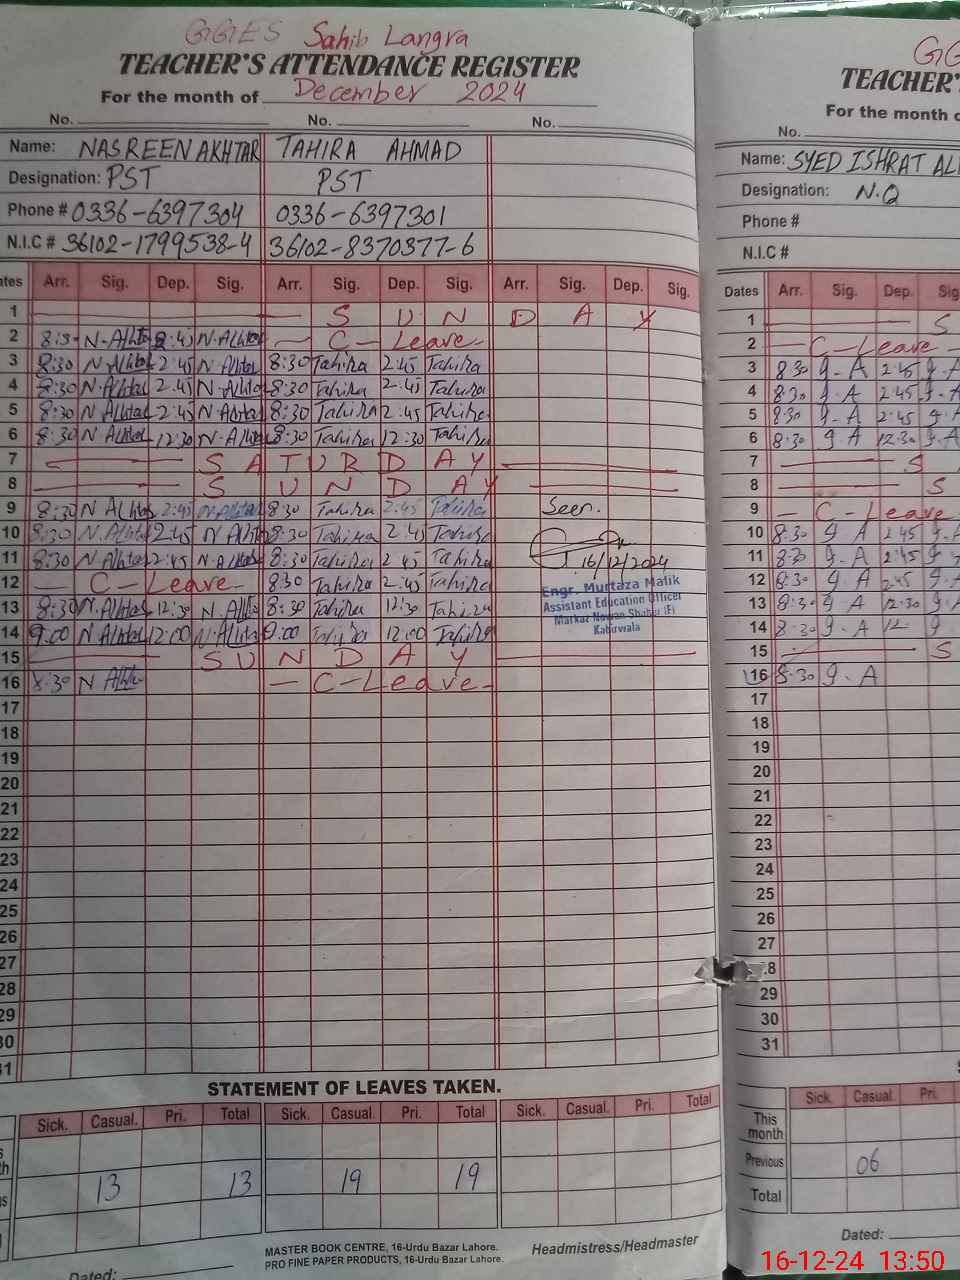 GGES Sahib Langra
TEACHER'S ATTENDANCE REGISTER
For the month of December 2024
No. No. No.
Name: NASREEN AKHTAR TAHIRA AHMAD
Designation: PST PST
Phone # 0336-6397304 0336-6397301
N.I.C # 36102-1799538-4 36102-8370377-6
Arr. Sig. Dep. Sig. Arr. Sig. Dep. Sig. Arr. Sig. Dep. Sig.
1 S U N D A Y
2 N-Akhtar 2:45 N-Akhtar — C-Leave
3 8:30 N-Akhtar 2:45 N-Akhtar 8:30 Tahira 2:45 Tahira
4 8:30 N-Akhtar 2:45 N-Akhtar 8:30 Tahira 2:45 Tahira
5 8:30 N-Akhtar 2:45 N-Akhtar 8:30 Tahira 2:45 Tahira
6 8:30 N Akhtar 12:30 N-Akhtar 8:30 Tahira 12:30 Tahira
7 S A T U R D A Y
8 S U N D A Y
9 8:30 N Akhtar 2:45 N-Akhtar 8:30 Tahira 2:45 Tahira Seen.
10 8:30 N.Akhtar 2:45 N Akhtar 8:30 Tahira 2:45 Tahira
11 8:30 N Akhtar 2:45 N-Akhtar 8:30 Tahira 2:45 Tahira 16/12/2024
12 — C-Leave 8:30 Tahira 2:45 Tahira
13 8:30 N.Akhtar 12:30 N-Akhtar 8:30 Tahira 12:30 Tahira
14 9:00 N Akhtar 12:00 N-Akhtar 9:00 Tahira 12:00 Tahira
Engr. Murtaza Malik
Assistant Education Officer
Markaz Nawan Shaher (F)
Kabirwala
15 S U N D A Y
16 8:30 N Akhtar — C-Leave
17
18
19
20
21
22
23
24
25
26
27
28
29
30
31
STATEMENT OF LEAVES TAKEN.
Sick. Casual. Pri. Total Sick. Casual. Pri. Total Sick. Casual. Pri. Total
13 13 19 19
MASTER BOOK CENTRE, 16-Urdu Bazar Lahore.
PRO FINE PAPER PRODUCTS, 16-Urdu Bazar Lahore.
Headmistress/Headmaster
Dated:
GG
TEACHER'
For the month o
No.
Name: SYED ISHRAT ALI
Designation: N.Q
Phone #
N.I.C #
Dates Arr. Sig. Dep. Sig
1 S
2 — C-Leave
3 8:30 g-A 2:45 g-A
4 8:30 g.A 2:45 g-A
5 8:30 g-A 2:45 g-A
6 8:30 g.A 12:30 g-A
7 S
8 S
9 — C-Leave
10 8:30 g A 2:45 g-A
11 8:30 g A 2:45 g
12 8:30 g.A 2:45 g-A
13 8:30 g A 12:30 g-A
14 8:30 g-A 12 g
15 S
16 8:30 g-A
17
18
19
20
21
22
23
24
25
26
27
28
29
30
31
Sick. Casual. Pri.
This month
Previous 06
Total
Dated:
16-12-24 13:50